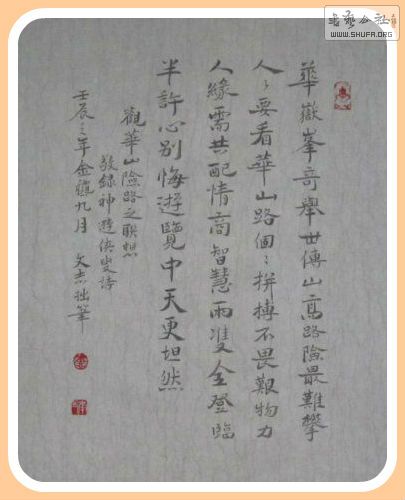 書藝公社
WWW.SHUFA.ORG
華嶽峯奇舉世傳山高路險最難攀
人〻要看華山路個〻拼搏不畏艱物力
人緣需共配情商智慧兩雙全登臨
半許心別悔遊覽中天更坦然
觀華山險路之聯想
敬錄神遊俠叟詩
壬辰之年金九月 文志拙筆